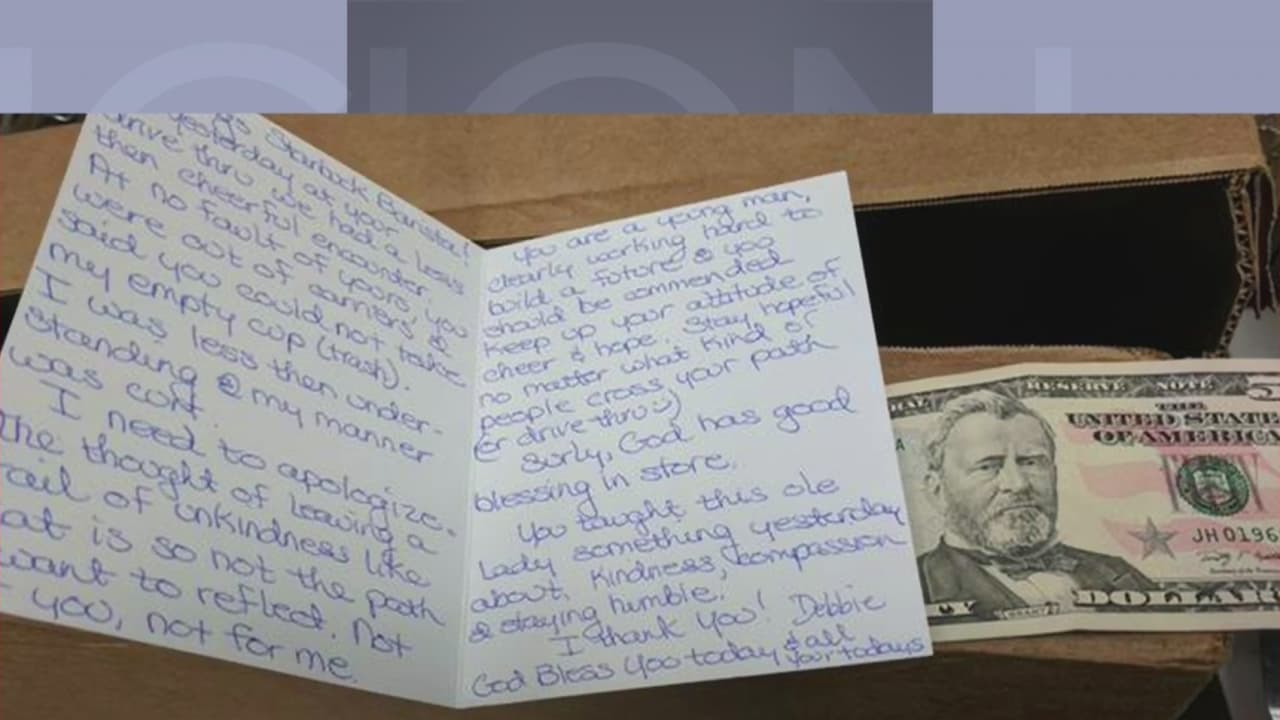 Starbuck Barista!
Yesterday at your
drive thru we had a less
then cheerful encounter.
At no fault of yours, you
were out of carriers &
said you could not take
my empty cup (trash).
I was less then under-
standing & my manner
was curt.
I need to apologize.
The thought of leaving a
rail of unkindness like
at is so not the path
want to reflect. Not
you, not for me.
You are a young man,
clearly working hard to
build a future & you
should be commended
keep up your attitude of
cheer & hope. Stay hopeful
no matter what kind of
people cross your path
er drive thru :)
Surly, God has good
blessing in store.
You taught this ole
Lady something yesterday
about, kindness, compassion
& staying humble.
I thank you! Debbie
God Bless You today & all
your todays
RESERVE NOTE
THE
UNITED STATE
OF AMERICA
JH 0196
DOLLAR